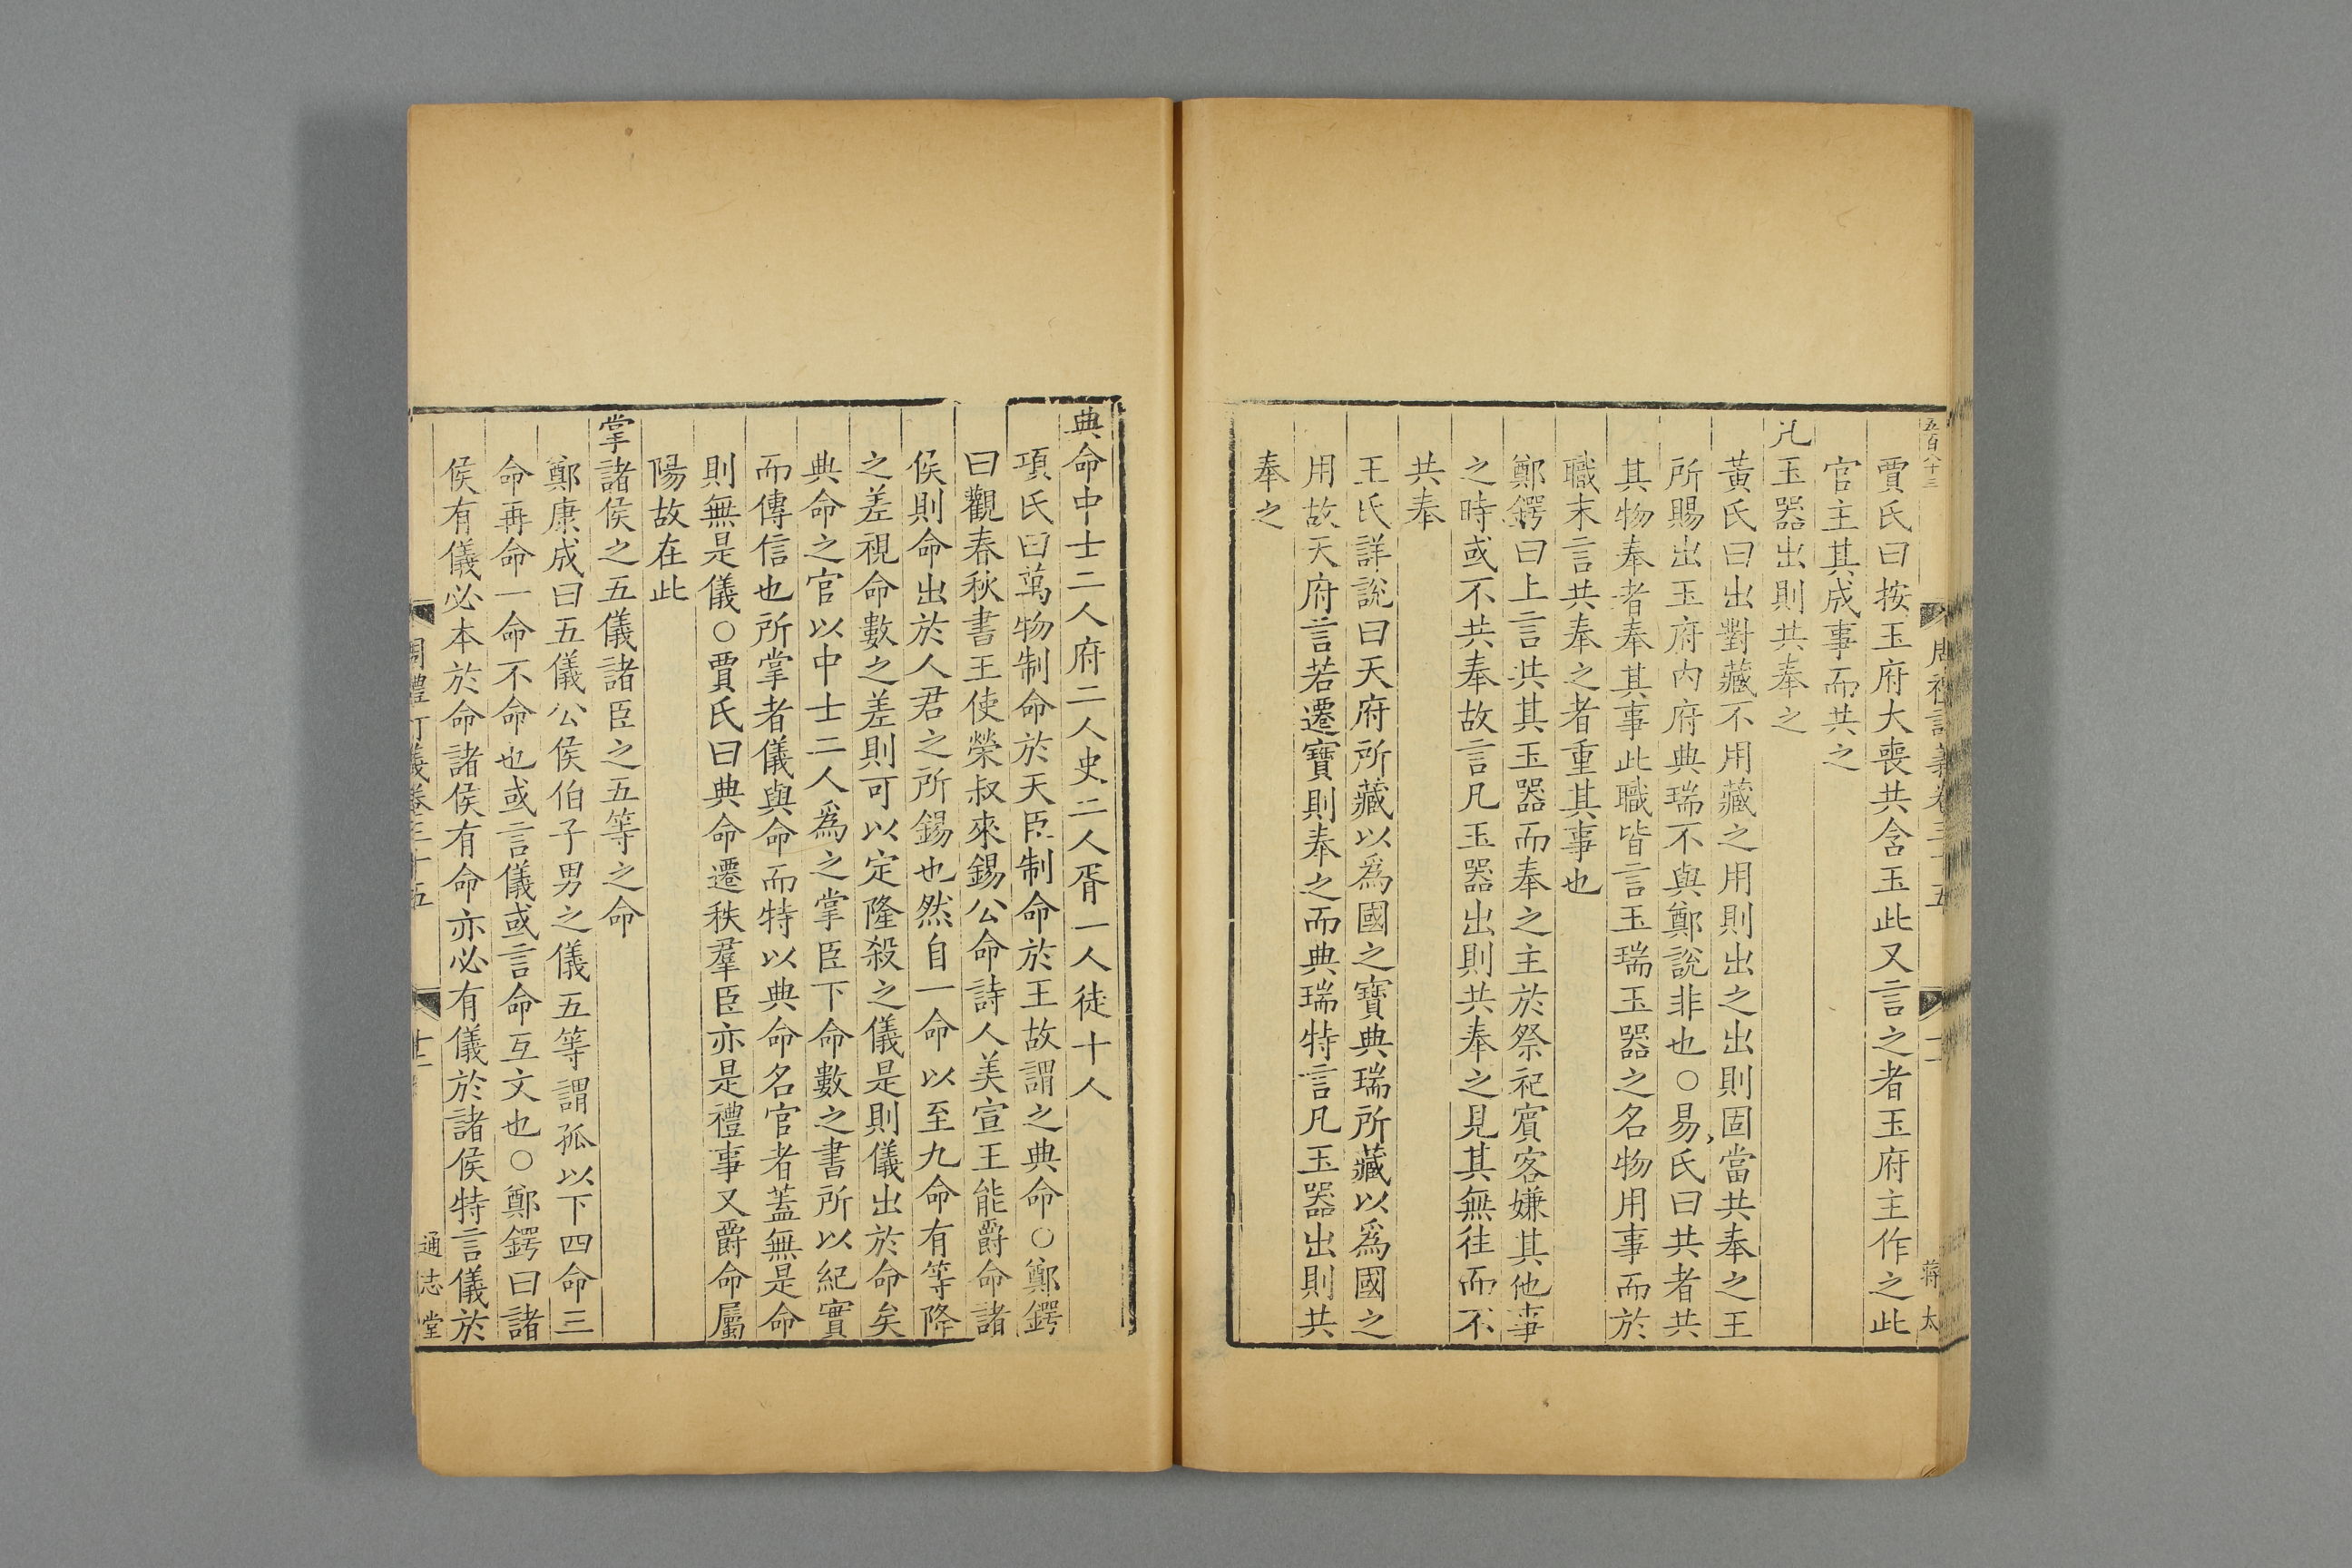 五百八十三
周禮訂義卷三十五
蔣太
賈氏曰按玉府大喪共含玉此又言之者玉府主作之此
官主其成事而共之
凡玉器出則共奉之
黃氏曰出對藏不用藏之用則出之出則固當共奉之王
所賜出玉府內府典瑞不與鄭說非也○易氏曰共者共
其物奉者奉其事此職皆言玉瑞玉器之名物用事而於
職末言共奉之者重其事也
鄭鍔曰上言共其玉器而奉之主於祭祀賓客嫌其他事
之時或不共奉故言凡玉器出則共奉之見其無往而不
共奉
王氏詳說曰天府所藏以為國之寶典瑞所藏以為國之
用故天府言若遷寶則奉之而典瑞特言凡玉器出則共
奉之
典命中士二人府二人史二人胥一人徒十人
項氏曰萬物制命於天臣制命於王故謂之典命○鄭鍔
曰觀春秋書王使榮叔來錫公命詩人美宣王能爵命諸
侯則命出於人君之所錫也然自一命以至九命有等降
之差視命數之差則可以定隆殺之儀是則儀出於命矣
典命之官以中士二人為之掌臣下命數之書所以紀實
而傳信也所掌者儀與命而特以典命名官者蓋無是命
則無是儀○賈氏曰典命遷秩羣臣亦是禮事又爵命屬
陽故在此
掌諸侯之五儀諸臣之五等之命
鄭康成曰五儀公侯伯子男之儀五等謂孤以下四命三
命再命一命不命也或言儀或言命互文也○鄭鍔曰諸
侯有儀必本於命諸侯有命亦必有儀於諸侯特言儀於
周禮訂義卷三十五
通志堂